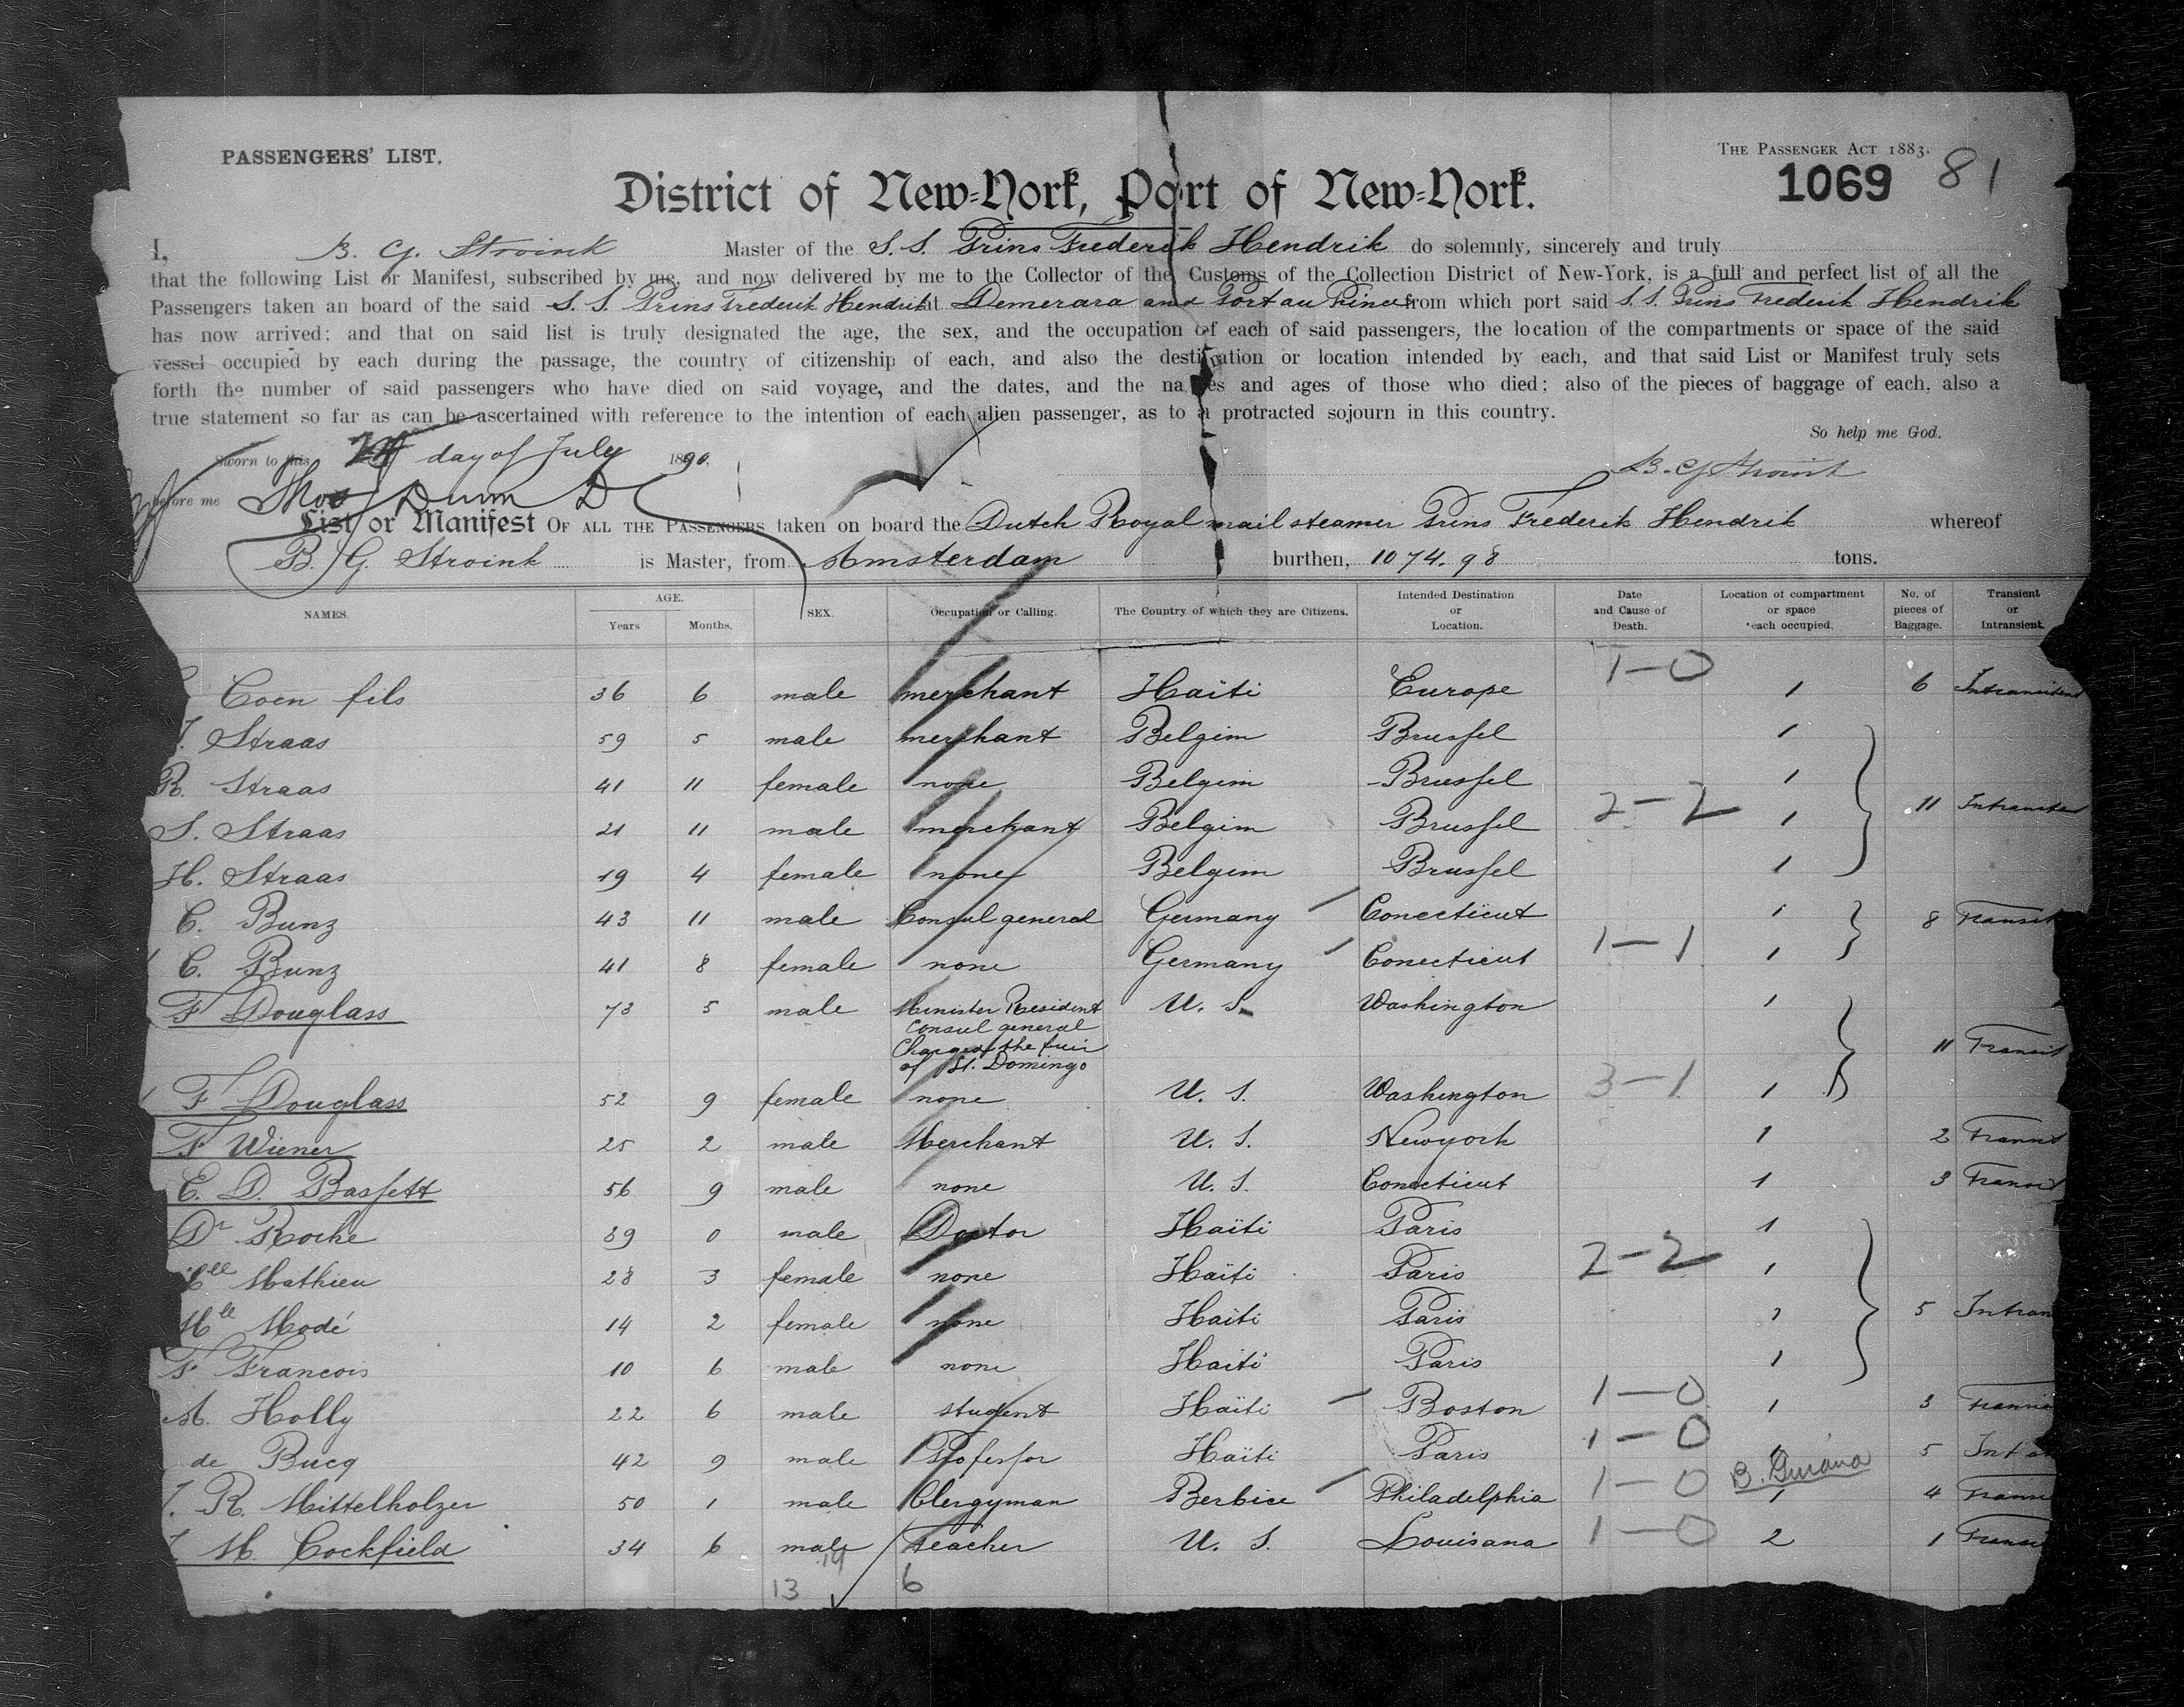 PASSENGERS' LIST.
THE PASSENGER ACT 1883.
1069 81
District of New-York, Port of New-York.
I, B. G. Stroink Master of the S. S. Prins Frederik Hendrik do solemnly, sincerely and truly
that the following List or Manifest, subscribed by me, and now delivered by me to the Collector of the Customs of the Collection District of New-York, is a full and perfect list of all the
Passengers taken an board of the said S. S. Prins Frederik Hendrik at Demerara and Port au Prince from which port said S. S. Prins Frederik Hendrik
has now arrived; and that on said list is truly designated the age, the sex, and the occupation of each of said passengers, the location of the compartments or space of the said
vessel occupied by each during the passage, the country of citizenship of each, and also the destination or location intended by each, and that said List or Manifest truly sets
forth the number of said passengers who have died on said voyage, and the dates, and the names and ages of those who died; also of the pieces of baggage of each, also a
true statement so far as can be ascertained with reference to the intention of each alien passenger, as to a protracted sojourn in this country.
So help me God.
Sworn to this day of July 1890.
B. G. Stroink
before me Thos Dunn D
List or Manifest OF ALL THE PASSENGERS taken on board the Dutch Royal mail steamer Prins Frederik Hendrik whereof
B. G. Stroink is Master, from Amsterdam burthen, 1074.98 tons.
NAMES. AGE. Years Months. SEX. Occupation or Calling. The Country of which they are Citizens. Intended Destination or Location. Date and Cause of Death. Location of compartment or space each occupied. No. of pieces of Baggage. Transient or Intransient.
1-0
Coen fils 36 6 male merchant Haïti Europe 1 6 Intransient
J. Straas 59 5 male merchant Belgim Brussel 1
R. Straas 41 11 female none Belgim Brussel 1
S. Straas 21 11 male merchant Belgim Brussel 2-2 1 11 Intransien
H. Straas 19 4 female none Belgim Brussel 1
C. Bunz 43 11 male Consul general Germany Conecticut 1 8 Transit
C. Bunz 41 8 female none Germany Conecticut 1-1 1
F Douglass 73 5 male Minister Resident U. S. Washington 1
Consul general
Charged the fair 11 Transit
of St. Domingo
F Douglass 52 9 female none U. S. Washington 3-1 1
F Wiener 25 2 male Merchant U. S. Newyork 1 2 Transit
E. D. Bassett 56 9 male none U. S. Conecticut 1 3 Transit
Dr Roche 39 0 male Doctor Haïti Paris 1
Mathieu 28 3 female none Haïti Paris 2-2 1
Mlle Modé 14 2 female none Haïti Paris 1 5 Intran
F Francois 10 6 male none Haïti Paris 1
A. Holly 22 6 male student Haïti Boston 1-0 1 3 Transi
de Bucq 42 9 male Professor Haïti Paris 1-0 1 5 Int
B. Guiana
J. R. Mittelholzer 50 1 male Clergyman Berbice Philadelphia 1-0 1 4 Transi
J. M. Cockfield 34 6 male Teacher U. S. Louisana 1-0 2 1 Transi
19
13 6